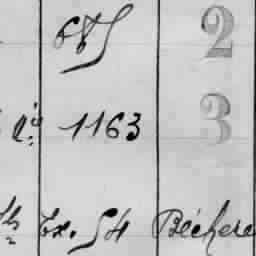 685 2
1163 3
Ex. 54 Béchere